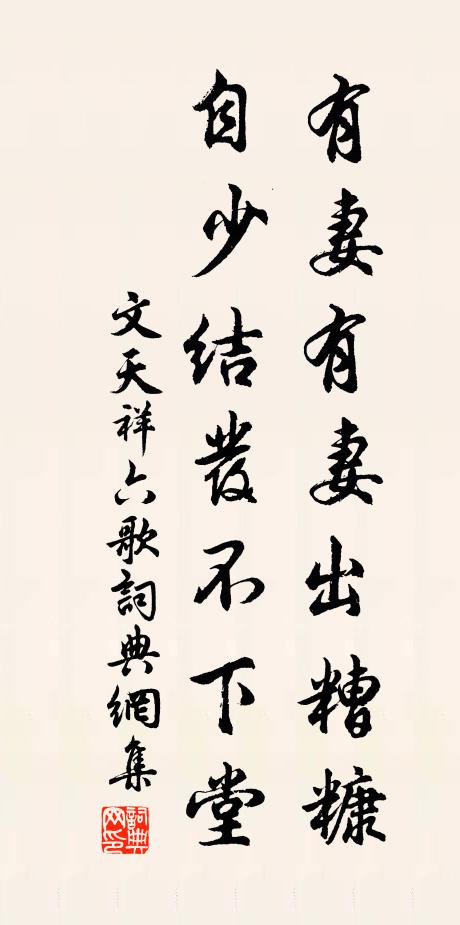 有妻有妻出糟糠
自少结發不下堂
文天祥六歌詞典網集
詞典网印